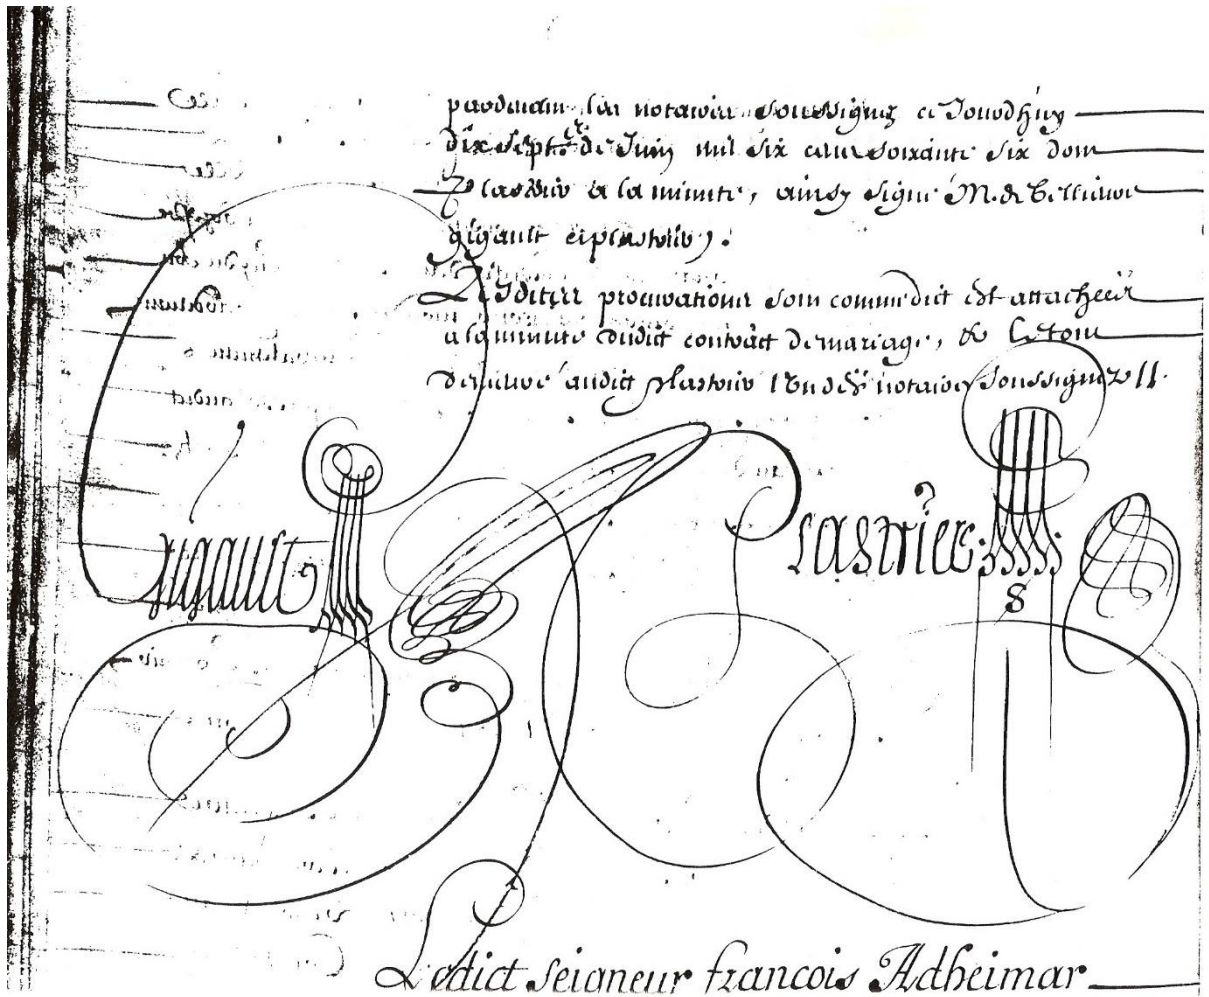 pardevant les notaires soussignez ce Jourdhuy
dix sept.e de Juin mil six cens soixante six dont
Plastrier a la minutte, ainsy signé M. de Bellievre
gigault et plastrier).
Lesdittes procurations sont comme dict est attachées
a la minutte dudict contract de mariage, & le tout
demeuré audict plastrier l'un desd. notaires soussignez //.
gigault
Plastrier
Ledict seigneur francois Adheimar